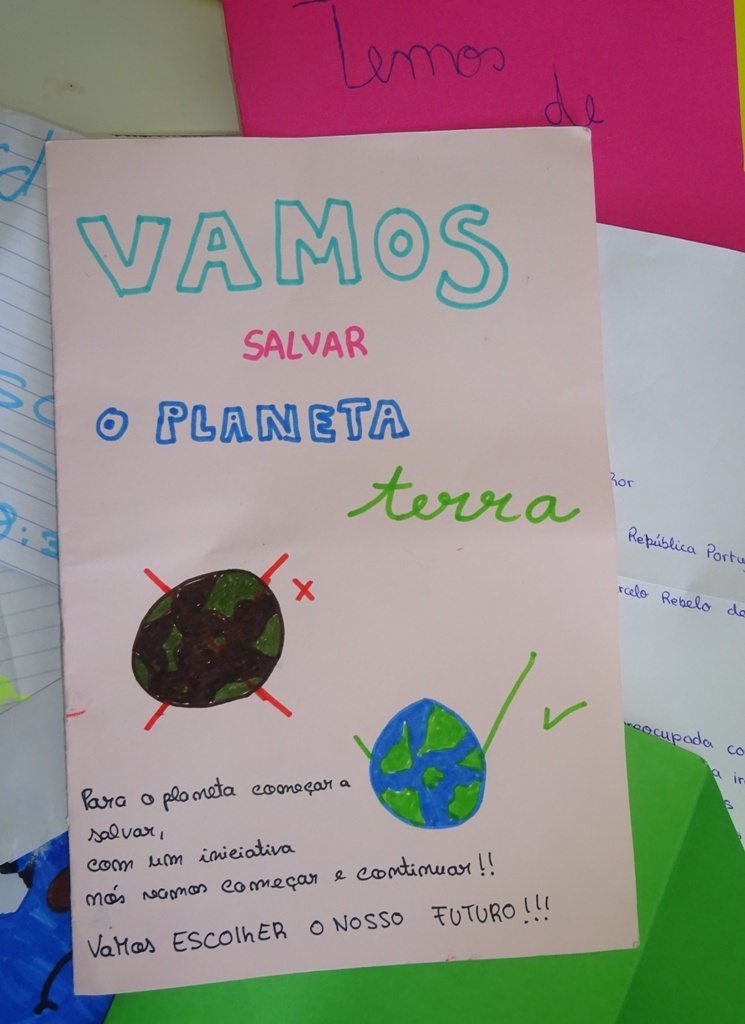 Temos
de
VAMOS
SALVAR
O PLANETA
terra
x
Para o planeta começar a
salvar,
com um iniciativa
nós vamos começar e continuar!!
VaMos ESCOlhER O NOSSO FUTURO!!!
República Portu
rcelo Rebelo de
reocupada co